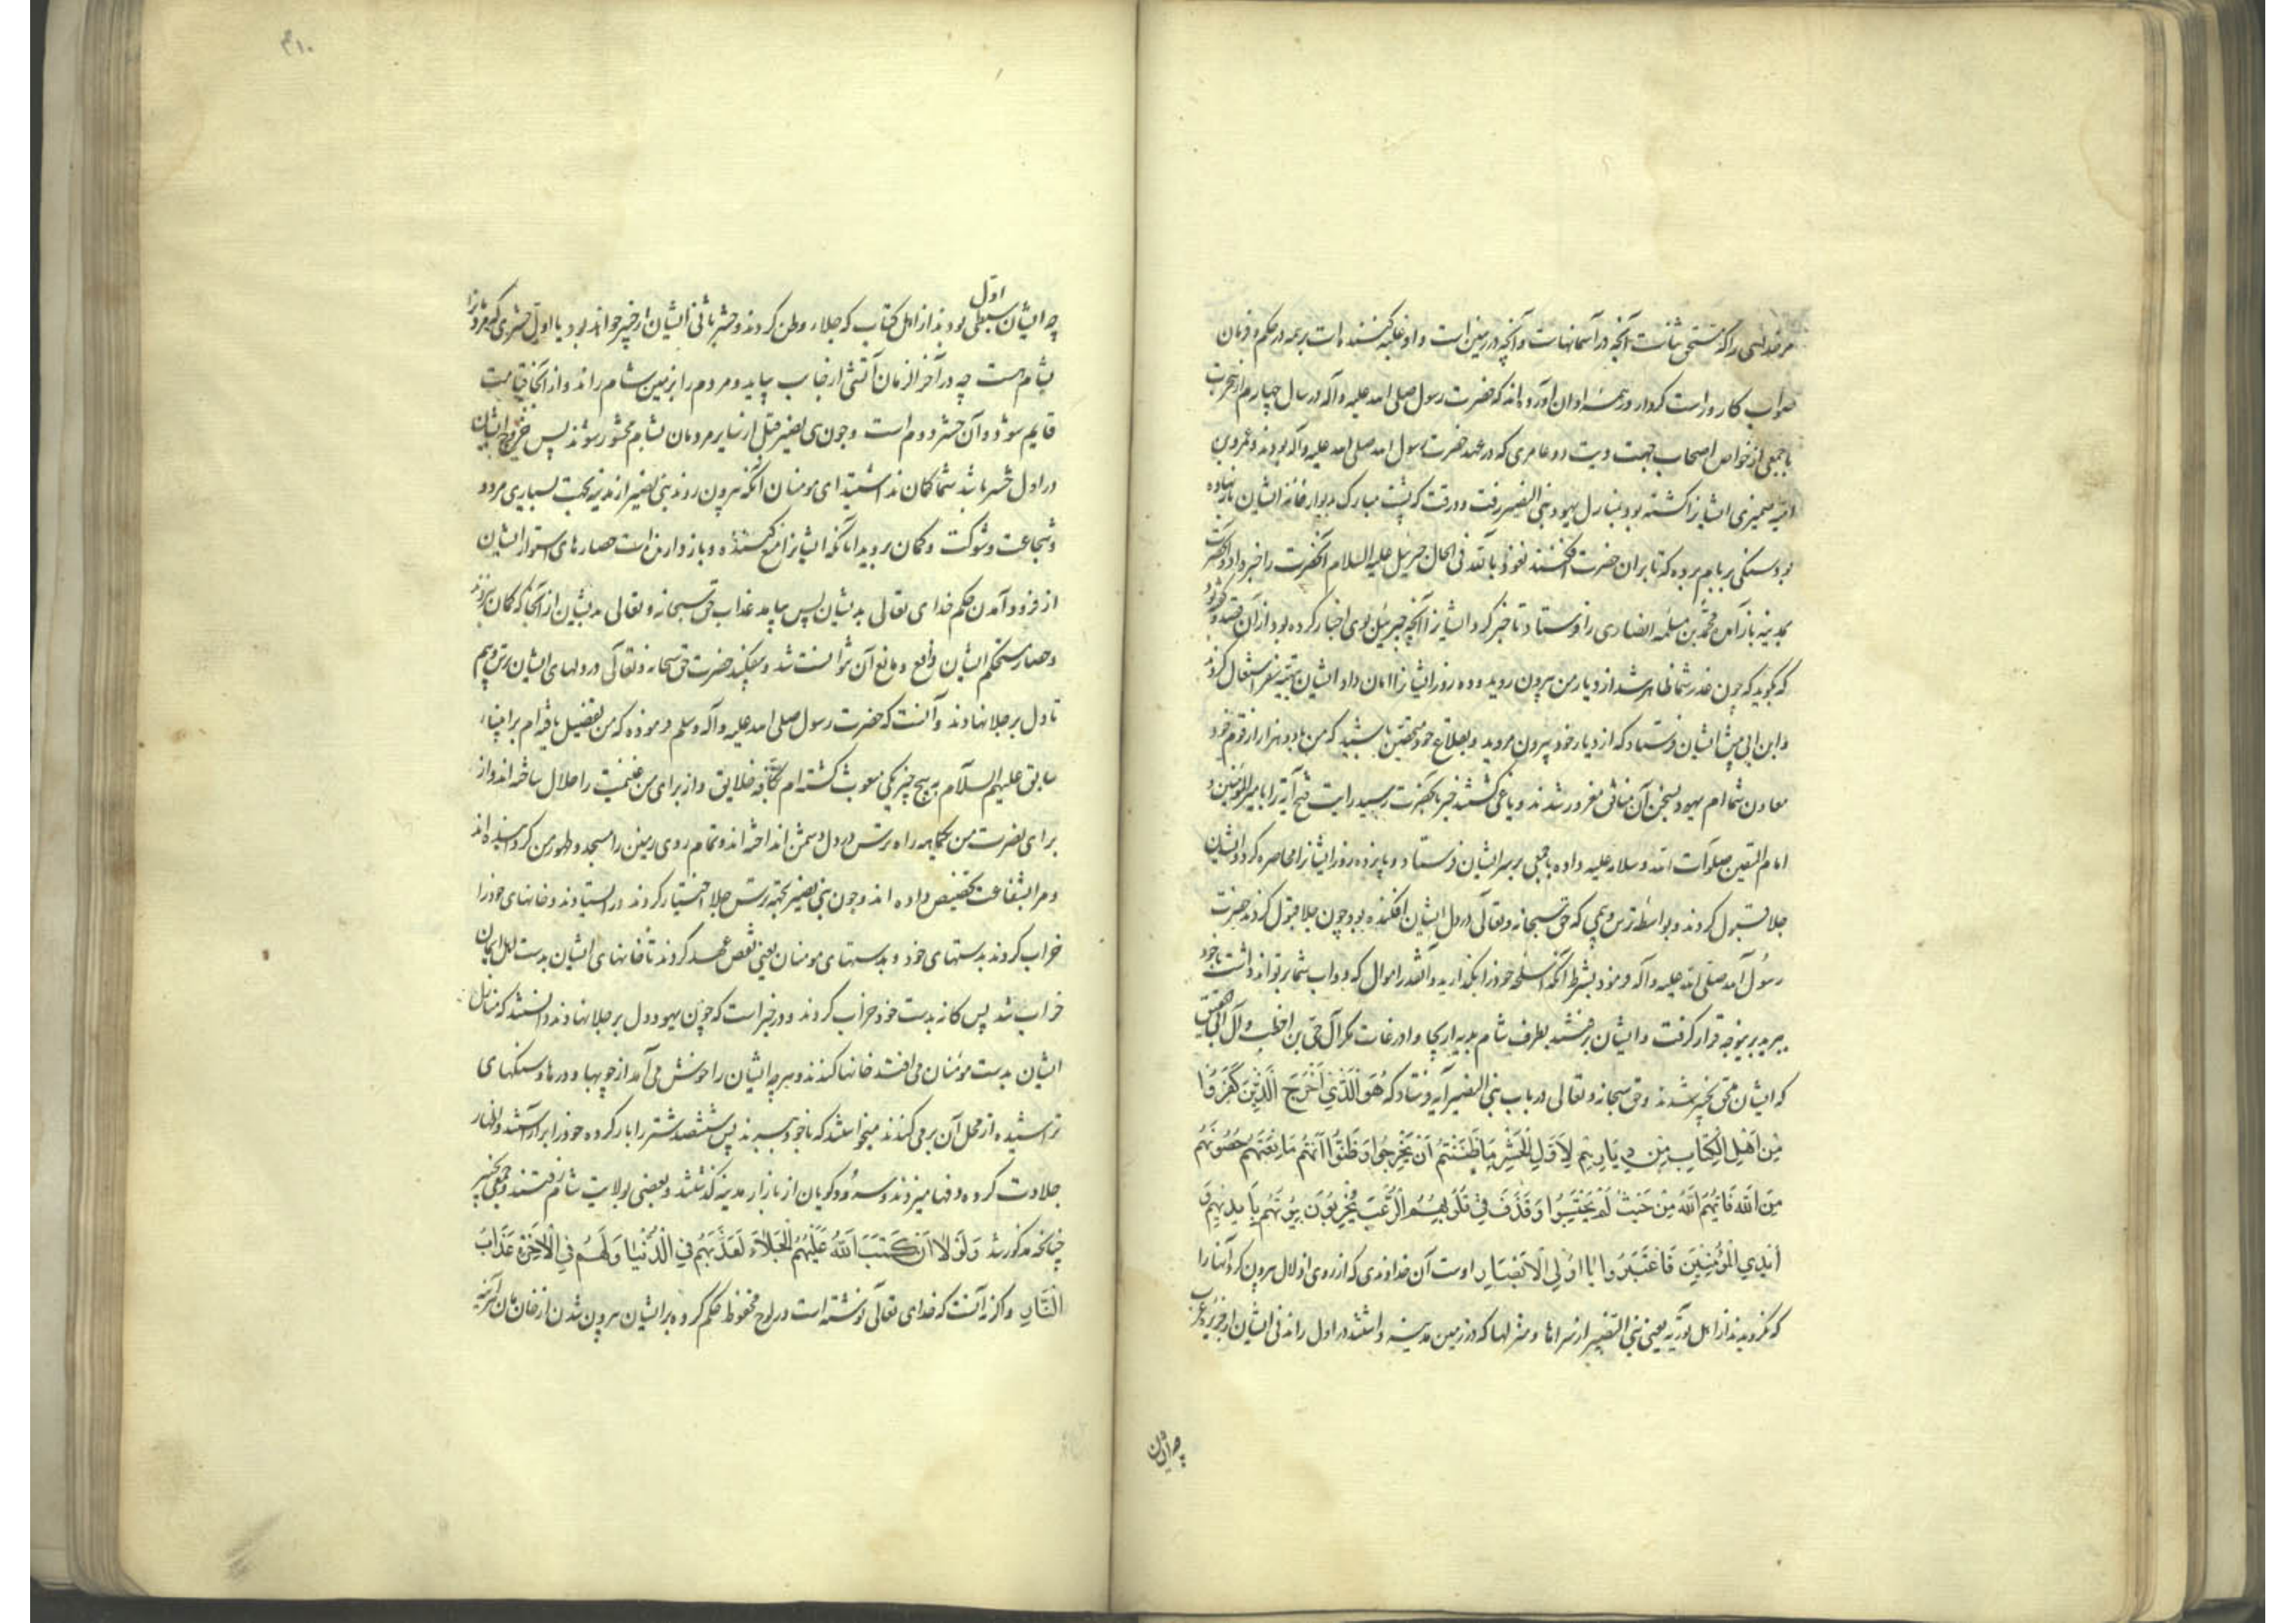 مر خدایی را که مستحق ثناست آنچه در آسمانهاست و آنچه در زمین است و او غلبه کننده است بر همه در حکم و فرمان
صواب کار و راست کردار و رحمه او ان آورده اند که حضرت رسول صلی الله علیه و آله در سال چهارم از هجرت
با جمعی از خواص اصحاب جهت دیت دو عامری که در عهد حضرت رسول الله صلی الله علیه و آله بودند و عمرو بن
امیه ضمیری ایشانرا کشته بود بمنازل یهود بنی النضیر رفت و در وقت که پشت مبارک بدیوار خانه ایشان باز نهاده
بود سنگی بر بام برده که تا بر آن حضرت افکنند نعوذ بالله فی الحال جبرئیل علیه السلام آنحضرت را خبر داد و آنحضرت
بمدینه باز آمد محمد بن مسلمه انصاری را فرستاد تا خبر کرد ایشانرا آنچه جبرئیل بوی اخبار کرده بود از آن قصد و
که بگوید که چون غدر شما ظاهر شد از دیار من بیرون روید و ده روز ایشانرا امان داد ایشان بتهیه سفر اشتغال کردند
و ابن ابی پیش ایشان فرستاد که از دیار خود بیرون مروید و بقلاع خود متحصن باشید که من با دو هزار از قوم خود
معاون شما ام یهود بسخن آن منافق مغرور شدند و یاغی گشتند خبر بآنحضرت رسید رایت فتح آیه را بامیرالمؤمنین و
امام المتقین صلوات الله و سلامه علیه داده با جمعی بر سر ایشان فرستاد و پانزده روز ایشانرا محاصره کرد و ایشان
جلا قبول کردند و بواسطه ترس و بیمی که حق سبحانه و تعالی در دل ایشان افکنده بود چون جلا قبول کردند حضرت
رسول الله صلی الله علیه و آله فرمود بشرط آنکه اسلحه خود را بگذارید و آنقدر اموال که دواب شما بر تواند داشت با خود
ببرید برینوجه قرار گرفت و ایشان برفتند بطرف شام به اریحا و ادرعات مگر آل حی بن اخطب و آل ابی الحقیق
که ایشان ملحق بخیبر شدند و حق سبحانه و تعالی در باب بنی النضیر آیه فرستاد که هُوَ الَّذِي أَخْرَجَ الَّذِينَ كَفَرُوا
مِنْ أَهْلِ الْكِتَابِ مِن دِيَارِهِمْ لِأَوَّلِ الْحَشْرِ مَا ظَنَنتُمْ أَنْ يَخْرُجُوا وَظَنُّوا أَنَّهُمْ مَانِعَتُهُمْ حُصُونُهُمْ
مِنَ اللَّهِ فَأَتَيهُمُ اللَّهُ مِنْ حَيْثُ لَمْ يَحْتَسِبُوا وَقَذَفَ فِي قُلُوبِهِمُ الرُّعْبَ يُخْرِبُونَ بُيُوتَهُمْ بِأَيْدِيهِمْ وَ
أَيْدِي الْمُؤْمِنِينَ فَاعْتَبِرُوا يَا أُولِي الْأَبْصَارِ اوست آن خداوندی که از روی اذلال بیرون کرد آنها را
که نگرویدند از اهل توریه یعنی بنی النضیر از سراها و منزلها که در زمین مدینه داشتند در اول راندنی ایشان از جزیره عرب
چه ایشان
۳۱۰
چه ایشان اول سبطی بودند از اهل کتاب که جلاء وطن کردند و حشر ثانی ایشان از خیبر خواهد بود یا اول حشری که مردمانرا
بشام است چه در آخر الزمان آتشی از جانب بیاید و مردم را بزمین شام راند و از آنجا قیامت
قایم شود و آن حشر دوم است و چون بنی نضیر قبل از سایر مردمان بشام محشور شوند پس خروج ایشان
در اول حشر باشد شما گمان نداشتید ای مومنان آنکه بیرون روند بنی نضیر از مدینه بجهت بسیاری مردم
و شجاعت و شوکت و گمان بردید اما آنکه ایشانرا منع کننده و بازدارنده است حصارهای استوار ایشان
از فرود آمدن حکم خدای تعالی بدیشان پس بیامد عذاب حق سبحانه و تعالی بدیشان از آنجا که گمان نبردند
و حصار مستحکم ایشان دافع و مانع آن نتوانست شد و بیفکند حضرت حق سبحانه و تعالی در دلهای ایشان ترس و بیم
تا دل بر جلا نهادند و آنست که حضرت رسول صلی الله علیه و آله وسلم فرموده که من تفضیل یافته ام بر انبیاء
سابق علیهم السلام به پنج چیز یکی مبعوث گشته ام بکافه خلایق و از برای من غنیمت را حلال ساخته اند و از
برای نصرت من یکماهه راه ترس در دل دشمن انداخته اند و تمام روی زمین را مسجد و طهور من گردانیده اند
و مرا بشفاعت تخصیص داده اند و چون بنی نضیر بجهت ترس جلا اختیار کردند در ایستادند و خانهای خود را
خراب کردند بدستهای خود و بدستهای مومنان یعنی نقص عهد کردند تا خانهای ایشان بدست اهل ایمان
خراب شد پس کانه بدست خود خراب کردند و در خبر است که چون یهود دل بر جلا نهادند دانستند که منازل
ایشان بدست مؤمنان می افتد خانها کندند و هر چه ایشان را خوش می آمد از چوبها و درها و سنگهای
تراشیده از محل آن بر می کندند میخواستند که با خود ببرند پس ششصد شتر را بار کرده خود را بر آراستند و اظهار
جلادت کرده دفها میزدند و سرود گویان از بازار مدینه گذشتند و بعضی بولایت شام رفتند و جمعی بخیبر
چنانکه مذکور شد وَلَوْلَا أَنْ كَتَبَ اللَّهُ عَلَيْهِمُ الْجَلَاءَ لَعَذَّبَهُمْ فِي الدُّنْيَا وَلَهُمْ فِي الْآخِرَةِ عَذَابُ
النَّارِ و اگر نه آنست که خدای تعالی نوشته است در لوح محفوظ حکم کرده بر ایشان بیرون شدن از خان مان